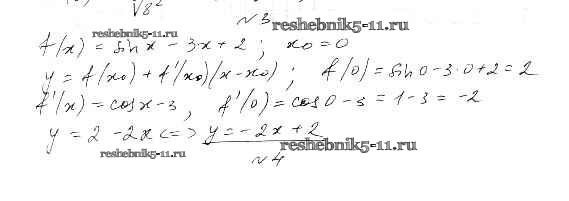 √8²
№3
reshebnik5-11.ru
reshebnik5-11.ru
f(x) = sin x - 3x + 2 ; x₀ = 0
y = f(x₀) + f'(x₀)(x - x₀) ; f(0) = sin 0 - 3·0 + 2 = 2
f'(x) = cos x - 3 , f'(0) = cos 0 - 3 = 1 - 3 = -2
y = 2 - 2x <=> y = -2x + 2
reshebnik5-11.ru
reshebnik5-11.ru
№4